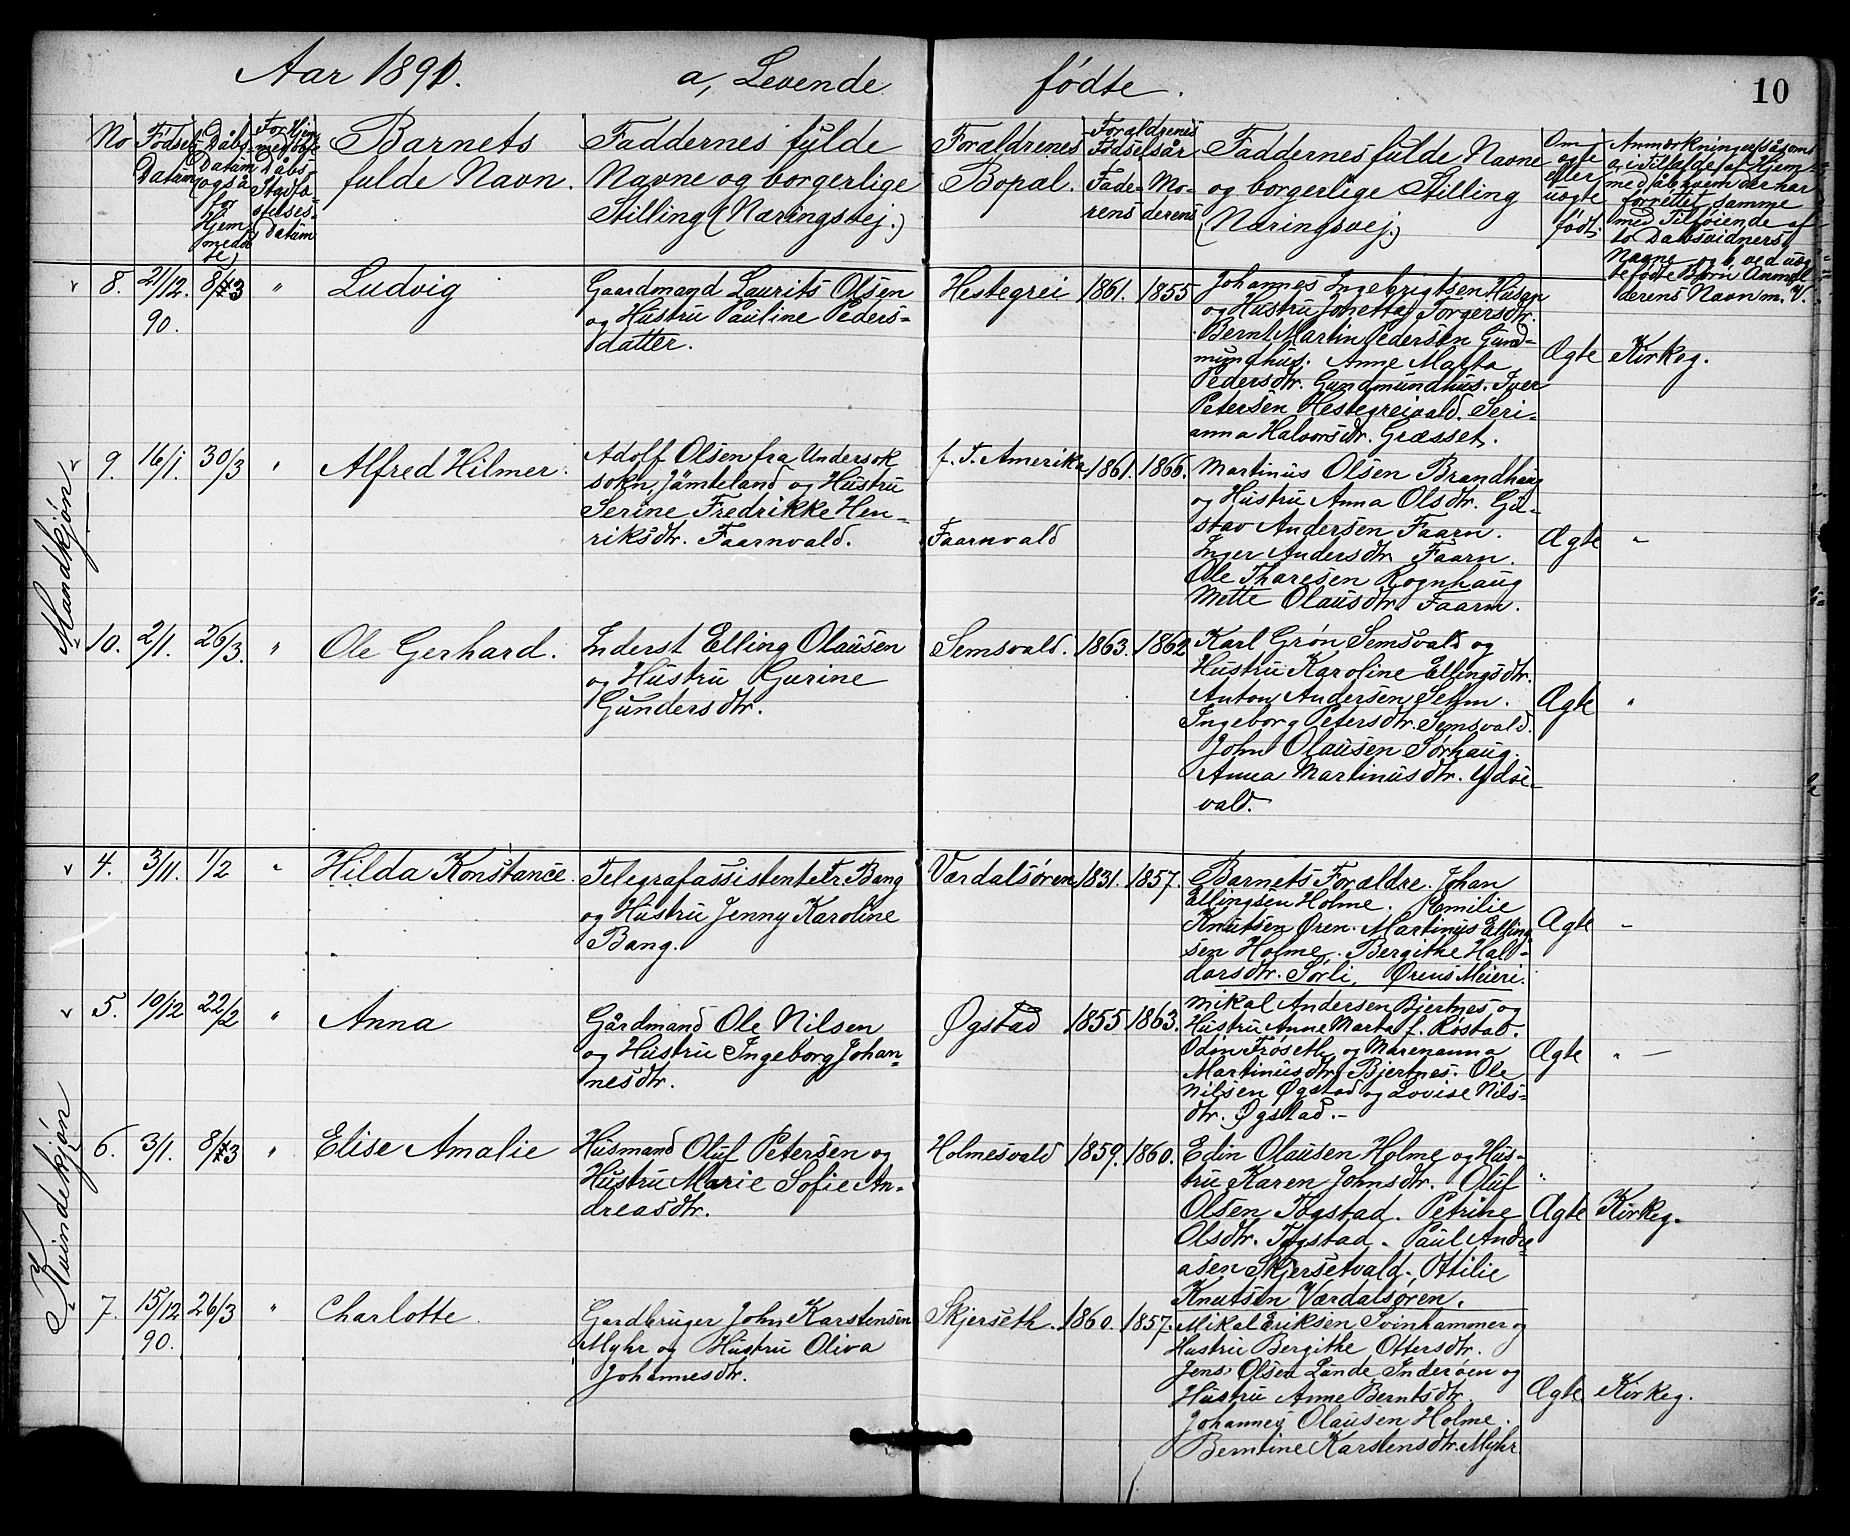 Aar 1891. a, Levende fødte. 10
No
Fødsels-
Datum
Dåbs-
Datum
også
for
Hjem
medøb
te,
For Hjem
medøbte
Dåbs-
Stadfæ
stelses-
datum
Barnets
fulde Navn.
Faddernes fulde
Navne og borgerlige
Stilling (Næringsvej.)
Forældrenes
Bopæl.
Forældrenes
Fødselsår
Fade-
rens
Mo-
derens
Faddernes fulde Navne
og borgerlige Stilling
(Næringsvej.)
Om
ægte
eller
uægte
født.
Anmærkninger såsom
a, i Tilfælde af Hjem-
medåb hvem der har
forrettet samme
med Tilføiende af
to Dåbsvidners
Navne og b, ved uæg
tefødte Børn Anmel
derens Navn m. V.
Mandkjøn
8. 21/12. 90. 8/3 " Ludvig
Gaardmand Laurits Olsen
og Hustru Pauline Peders-
datter.
Hestegrei 1861. 1855
Johannes Ingebrigtsen Husan
og Hustru Jonetta Torgersdtr.
Bernt Martin Pedersen Gund-
mundhus. Anne Marta
Pedersdtr. Gundmundhus. Iver
Petersen Hestegreivald. Seri-
anna Halvorsdtr. Græsset.
Ægte Kirkeg.
9. 16/1. 30/3 " Alfred Hilmer.
Adolf Olsen fra Undersok
sokn, Jämteland og Hustru
Serine Fredrikke Hen-
riksdtr. Faarnvald.
f. T. Amerika
Faarnvald
1861. 1866.
Martinus Olsen Brandhaug
og Hustru Anna Olsdtr. Gu-
stav Andersen Faarn.
Inger Andersdtr. Faarn.
Ole Tharesen Rognhaug
Mette Olausdtr. Faarn.
Ægte "
10. 2/1. 26/3. " Ole Gerhard.
Inderst Elling Olausen
og Hustru Gurine
Gundersdtr.
Semsvald. 1863. 1862
Karl Grøn Semsvald og
Hustru Karoline Ellingsdtr.
Anton Andersen Sehm.
Ingeborg Petersdtr. Semsvald.
John Olausen Sørhaug.
Anna Martinusdtr. Ydse-
vald.
Ægte "
Kvindekjøn
4. 3/11. 1/2 " Hilda Konstance.
Telegrafassistent Fr. Bang
og Hustru Jenny Karoline
Bang.
Værdalsøren 1831. 1857.
Barnets Forældre. Johan
Ellingsen Holme. Emilie
Knutsen Øren. Martinus Elling-
sen Holme. Bergithe Hal-
dorsdtr. Sørli, Ørens Meieri.
Ægte "
5. 10/12 22/2 " Anna
Gårdmand Ole Nilsen
og Hustru Ingeborg Johan-
nesdtr.
Øgstad 1855 1863.
Mikal Andersen Bjertnes og
Hustru Anne Marta f. Røstad.
Odin Frøseth og Marenanna
Martinusdtr. Bjertnes. Ole
Nilsen Øgstad og Lovise Nils-
dtr. Øgstad.-
Ægte " —
6. 3/1. 8/3 " Elise Amalie
Husmand Oluf Petersen og
Hustru Marie Sofie An-
dreasdtr.
Holmesvald 1859. 1860.
Edin Olausen Holme og Hus-
tru Karen Johnsdtr. Oluf
Olsen Togstad. Petrine
Olsdtr. Togstad. Paul Andre
asen Skjersetvald. Ottilie
Knutsen Værdalsøren.
Ægte Kirkeg.
7. 15/12 90. 26/3 " Charlotte.
Gardbruger John Karstensen
Myhr og Hustru Oliva
Johannesdtr.
Skjerseth. 1860. 1857.
Mikal Eriksen Svinhammer og
Hustru Bergithe Ottersdtr.
Jens Olsen Lunde Inderøen og
Hustru Anne Berntsdtr.
Johannes Olausen Holme.
Berntine Karstensdtr. Myhr
Ægte Kirkeg.